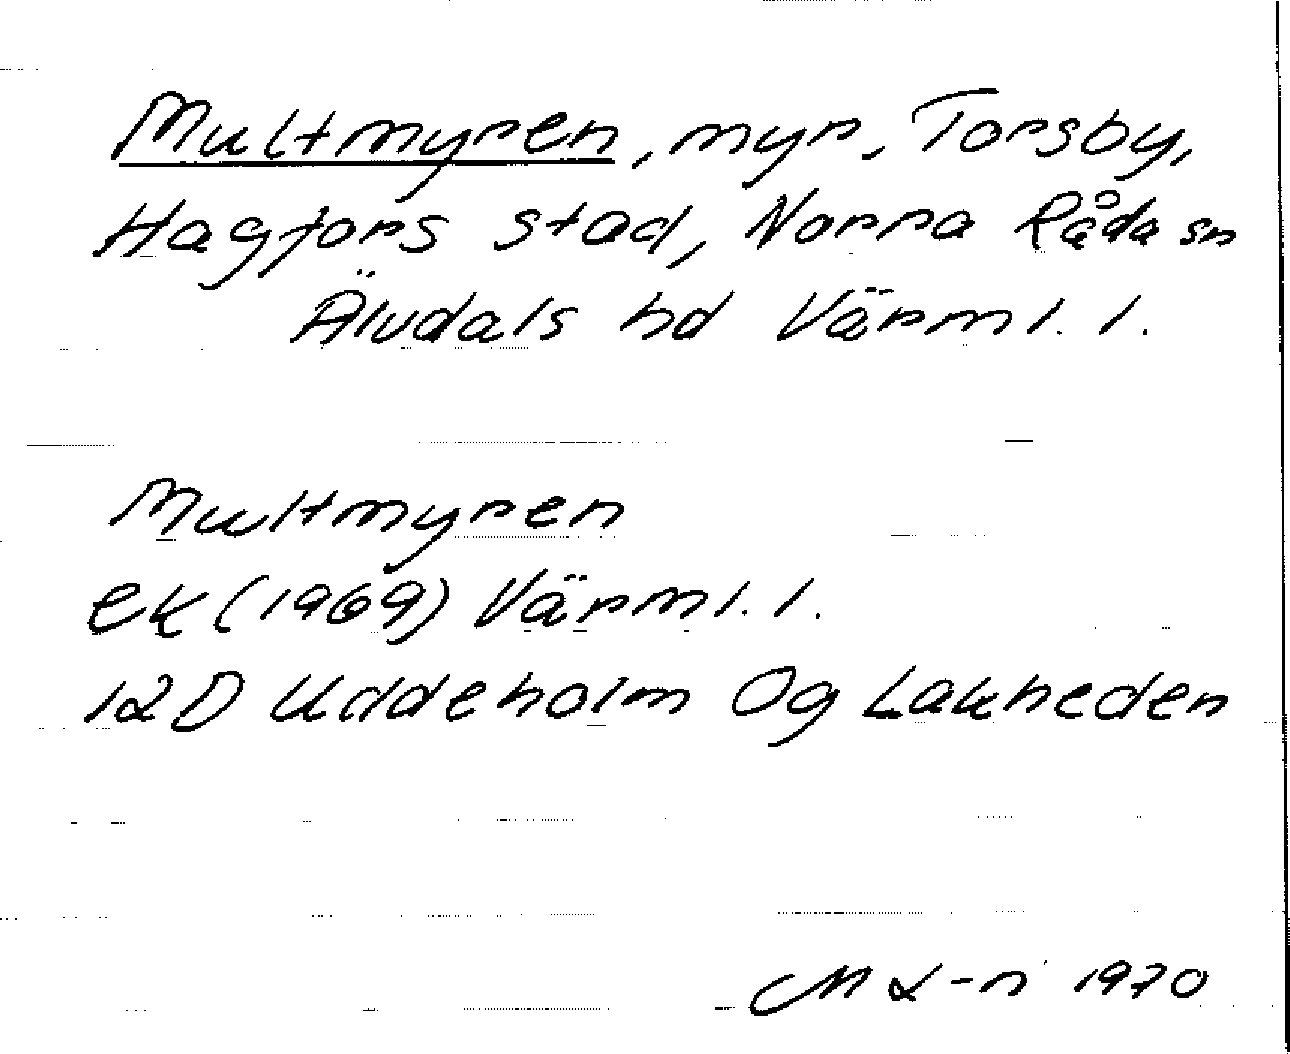 Multmyren, myr, Torsby,
Hagfors stad, Norra Råda sn
Älvdals hd Värml. l.
Multmyren
ek (1969) Värml. l.
12D Uddeholm 0g Lakheden
M L-n 1970